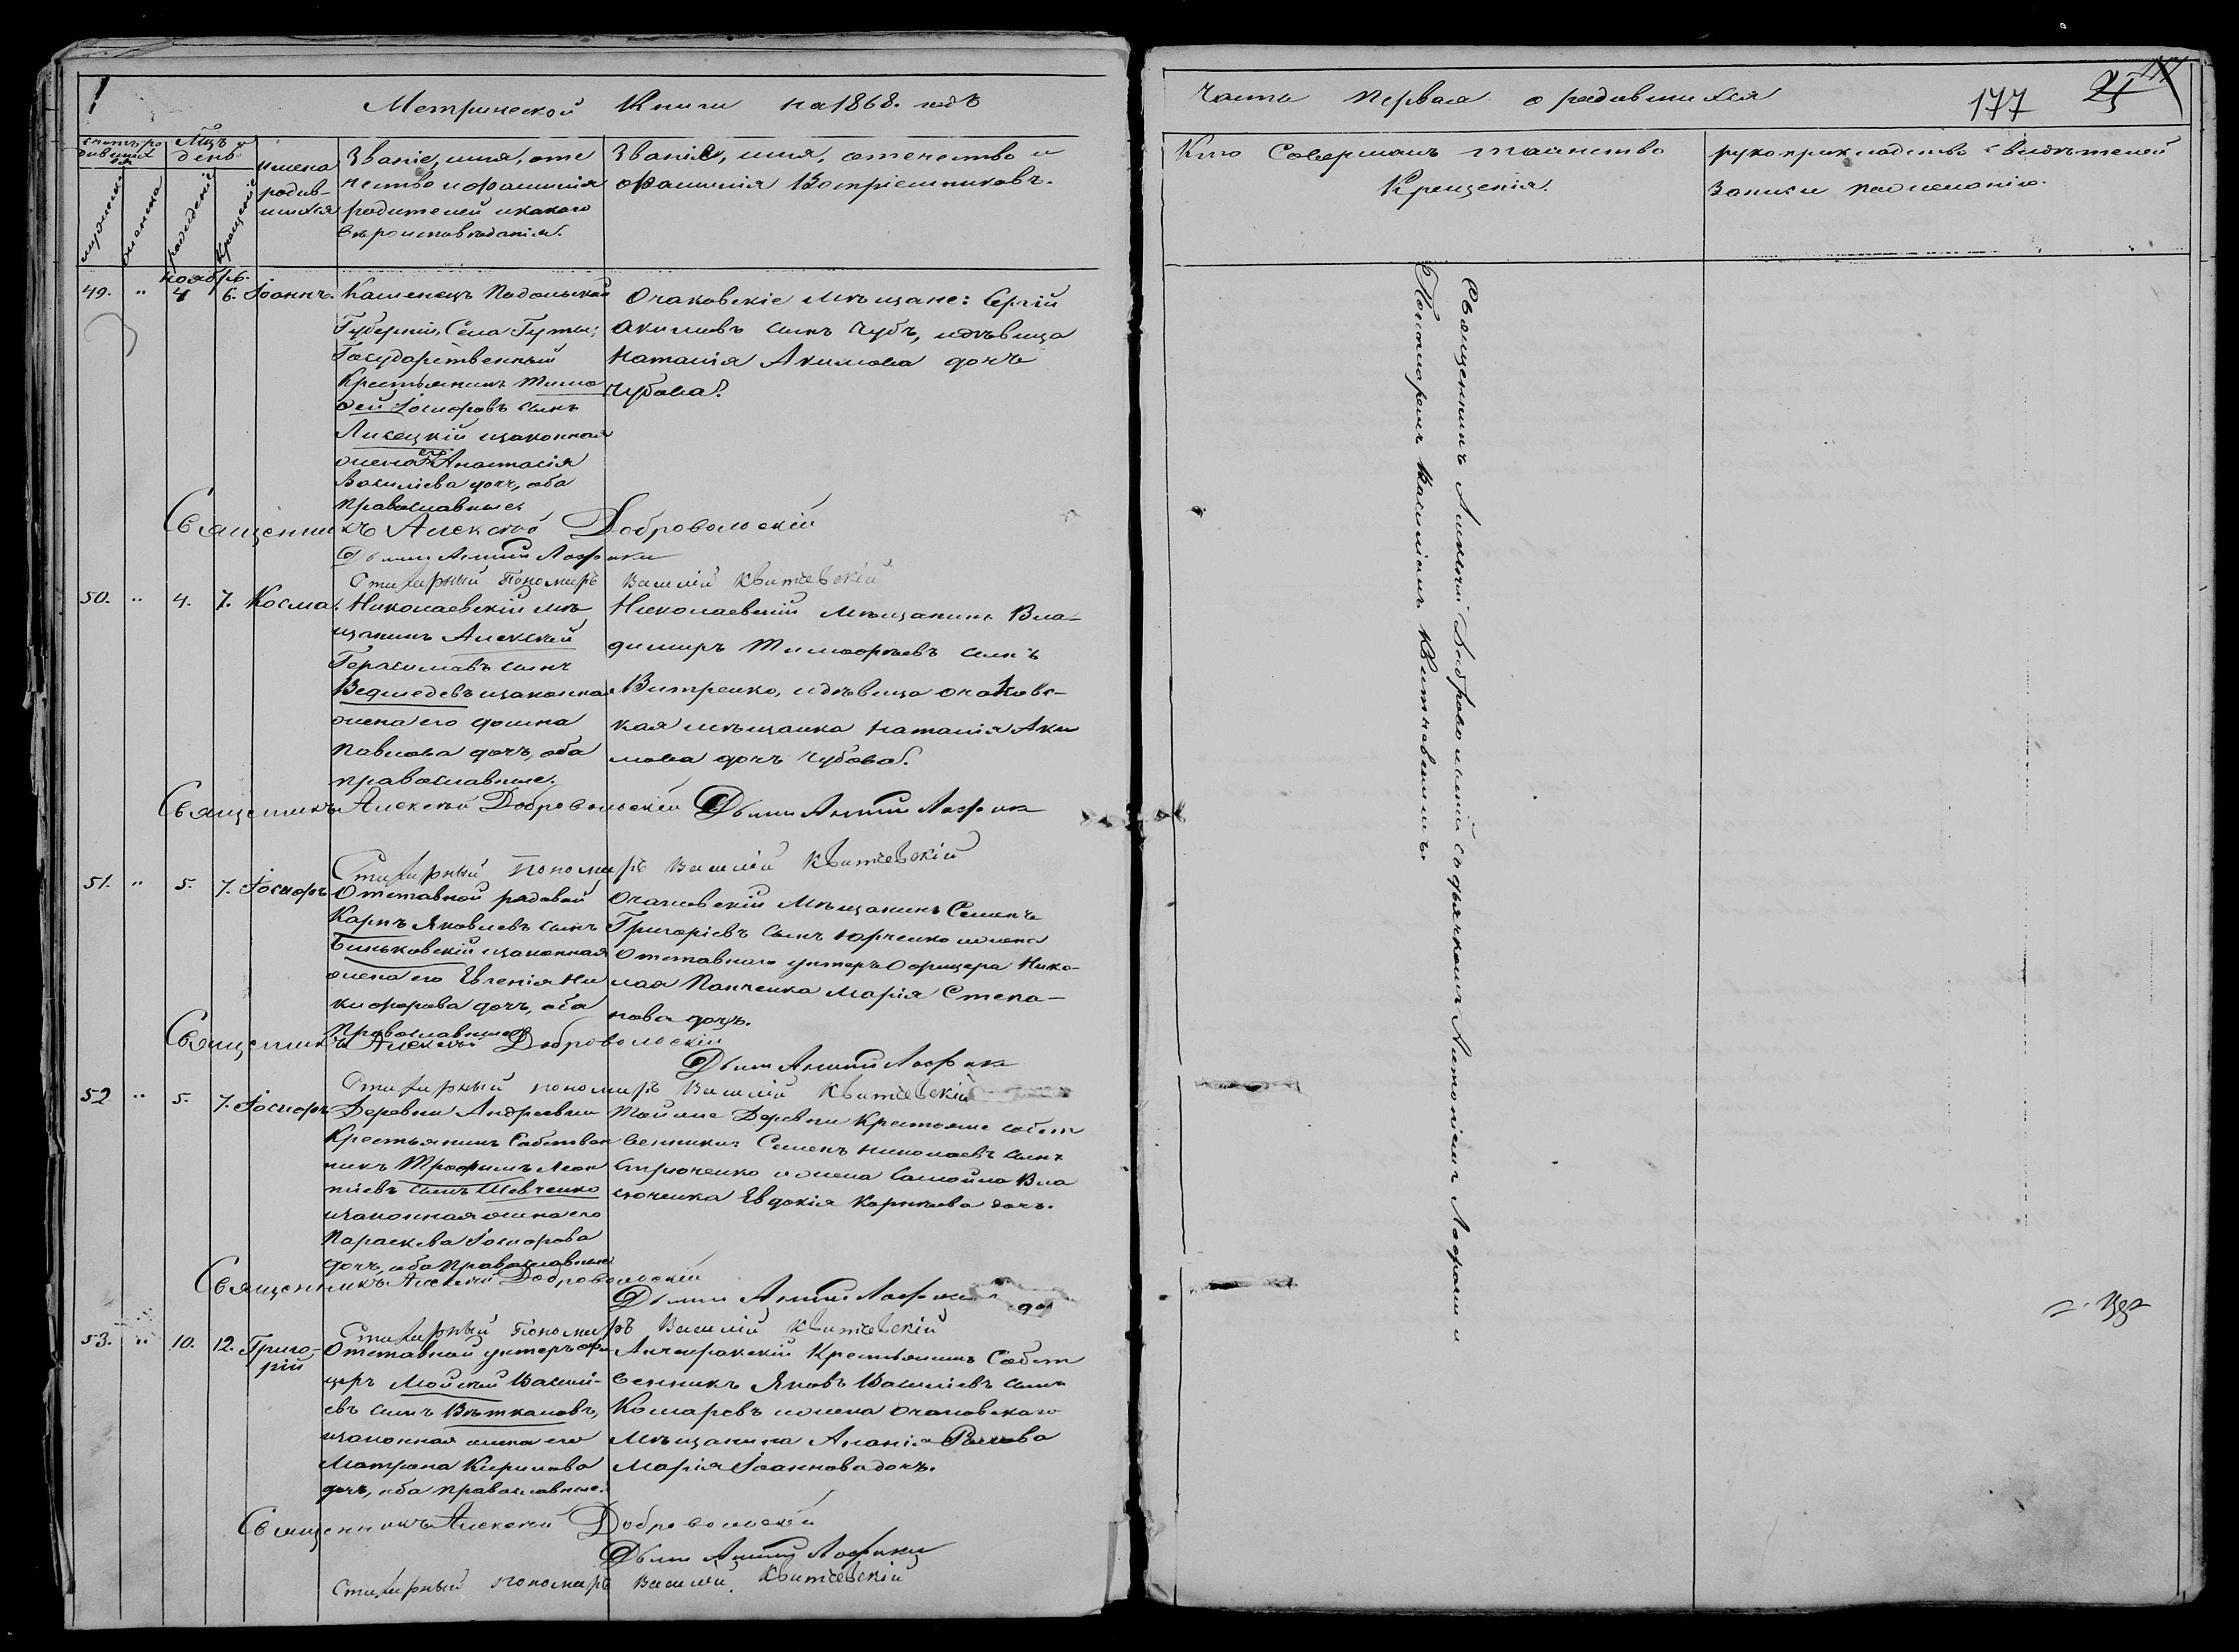 Метрической Книги на 1868. годъ
счетъ ро
дившихся
Мцъ и
день
мужеска
женска
рожденіе
крещеніе
имена
родив-
шихся
Званіе, имя, оте
чество и фамилія
родителей и какого
вѣроисповѣданія.
Званіе, имя, отечество и
фамилія Воспріемниковъ.
Ноябрь.
49. " 4 6. Іоаннъ.
Каменецъ Подольской
Губерніи, Села Гуты;
Государственный
Крестьянинъ Тимо
фей Іосифовъ сынъ
Лисецкій и законная
жена его Анастасія
Василіева дочь, оба
православные.
Очаковскіе мѣщане: Сергій
Акимовъ сынъ Чубъ, и дѣвица
Наталія Акимова дочь
Чубова.
Священникъ Алексѣй Добровольскій
Стихарный Пономарь Василій Квитчевскій
50. " 4. 7. Косма.
Николаевскій мѣ
щанинъ Алексѣй
Герасимовъ сынъ
Ведмедевъ и законная
жена его Домна
Павлова дочь, оба
православные.
Николаевскій мѣщанинъ Вла-
димиръ Тимофѣевъ сынъ
Витренко, и дѣвица очаковс-
кая мѣщанка Наталія Аки
мова дочь Чубова.
Священникъ Алексѣй Добровольскій
Стихарный Пономарь Василій Квитчевскій
51. " 5. 7. Іосифъ
Отставной рядовой
Карпъ Яковлевъ сынъ
Биньковскій и законная
жена его Евгенія Ни
кифорова дочь, оба
Православные
Очаковскій Мѣщанинъ Семенъ
Григоріевъ сынъ Юрченко и жена
Отставнаго унтеръ Офицера Нико-
лая Панченка Марія Степа-
нова дочь.
Священникъ Алексѣй Добровольскій
Стихарный пономарь Василій Квитчевскій
52 " 5. 7. Іосифъ
Деревни Андреевки
Крестьянинъ Собствен
никъ Трофимъ Леон
тіевъ сынъ Шевченко
и законная жена его
Параскева Іосифова
дочь, оба Православные
Той же Деревни Крестьяне собст
венники: Семенъ Николаевъ сынъ
Стрюченко и жена Самойла Вла
сюченка Евдокія Корнѣева дочь.
Священникъ Алексѣй Добровольскій
Стихарный Пономарь Василій Квитчевскій
53. " 10. 12. Григо-
рій
Отставной унтеръ офи
церъ Мойсей Василі-
евъ сынъ Вѣткаловъ,
и законная жена его
Матрона Кирилова
дочь, оба православные.
Крестьянинъ Собст
венникъ Яковъ Василіевъ сынъ
Комаревъ и жена Очаковскаго
Мѣщанина Ананія
Марія Іоаннова дочь.
Священникъ Алексѣй Добровольскій
Стихарный пономарь Василій Квитчевскій
Часть Первая о родившихся
177
Кто Совершалъ таинство
Крещенія.
рукоприкладство свидѣтелей
Записи по желанію.
Священникъ Алексѣй Добровольскій съ дьячкомъ Антоніемъ и
Пономаремъ Василіемъ Квитчевскимъ.